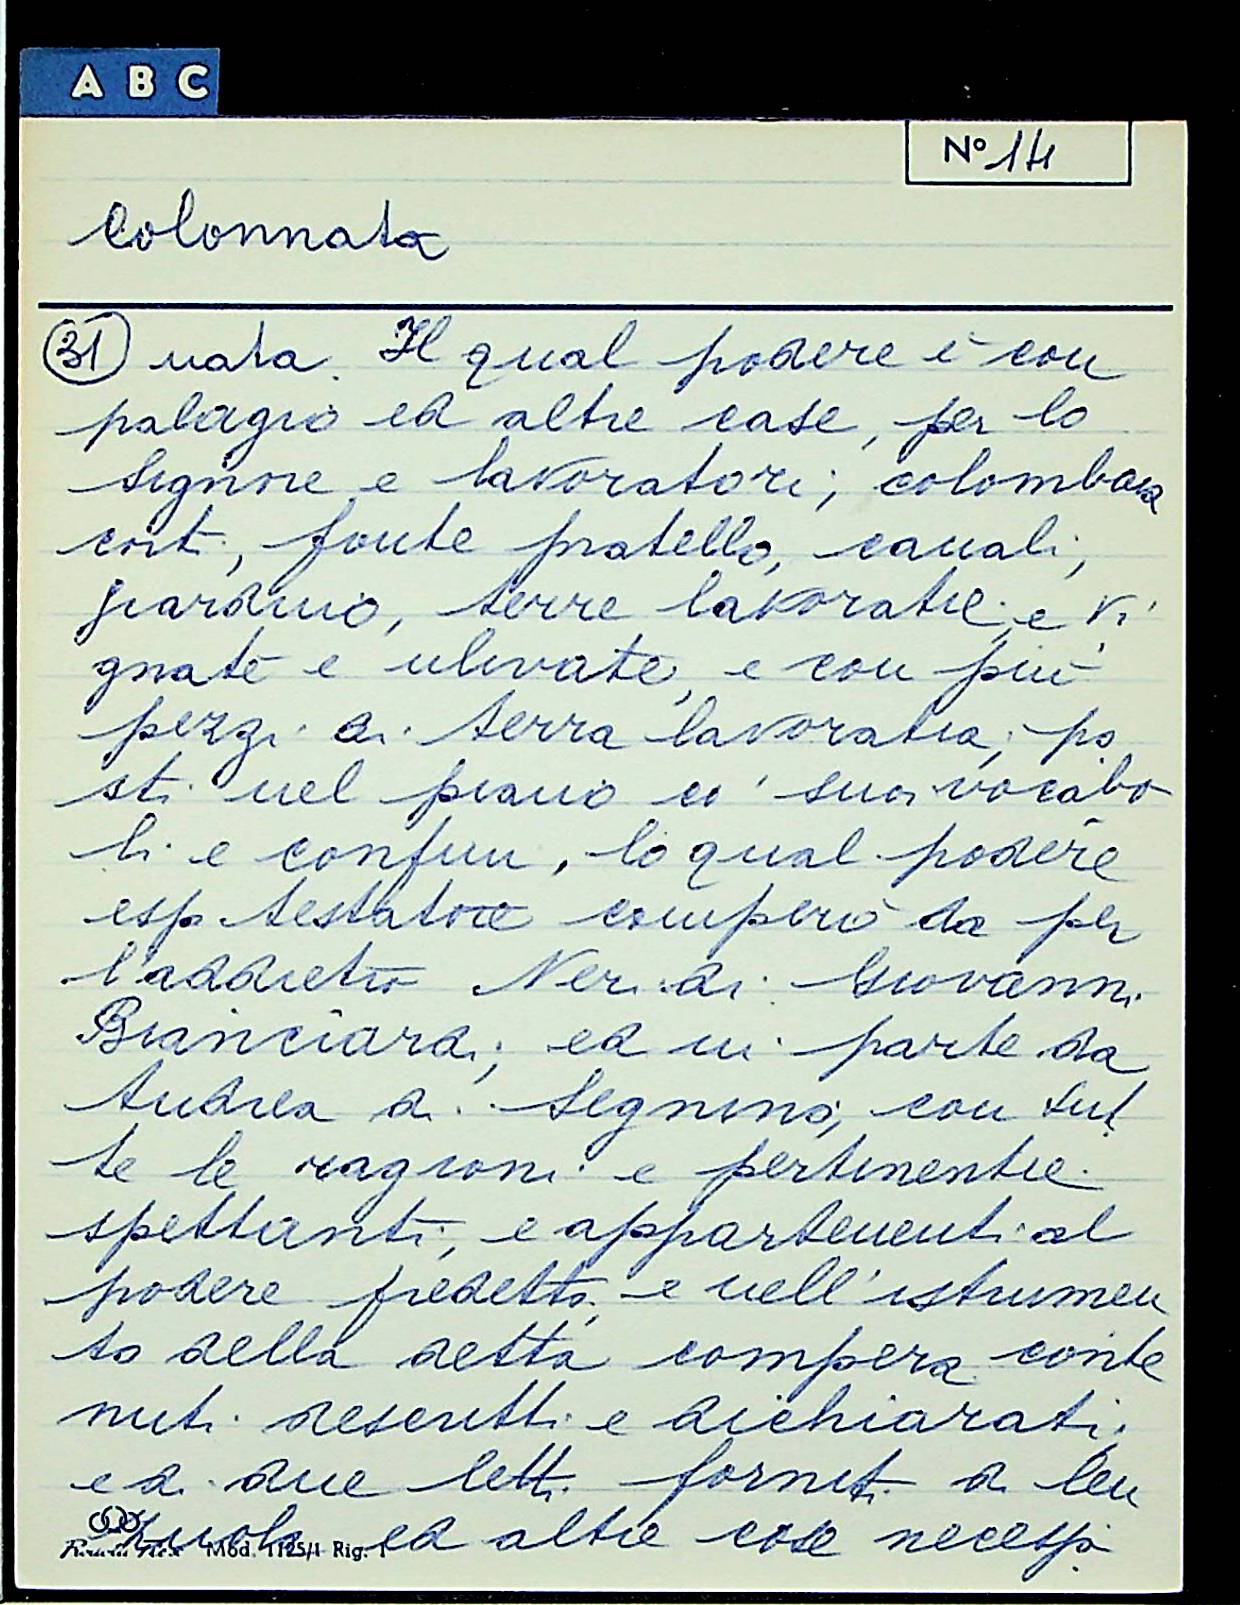 A B C
Nº 14
Colonnata
31 nata. Il qual podere è con
palagio ed altre case, per lo
signore e lavoratori; colombaia
corti, fonte pratello, canali,
giardino, terre lavoratie, e vi
gnate e ulivate, e con più
pezzi di terra lavoratia; po
sti nel piano co' suoi vocabo
li e confini, lo qual podere
esp testatore comperò da per
l'addietro Neri di Giovanni
Bianciardi; ed in parte da
Andrea di Segnino, con tut
te le ragioni e pertinentie
spettanti, e appartenenti al
podere predetto, e nell'istrumen
to della detta compera conte
nuti descritti e dichiarati;
ed due letti forniti di len
zuola ed altre cose necessi
Mod. 1125/1 Rig. 1